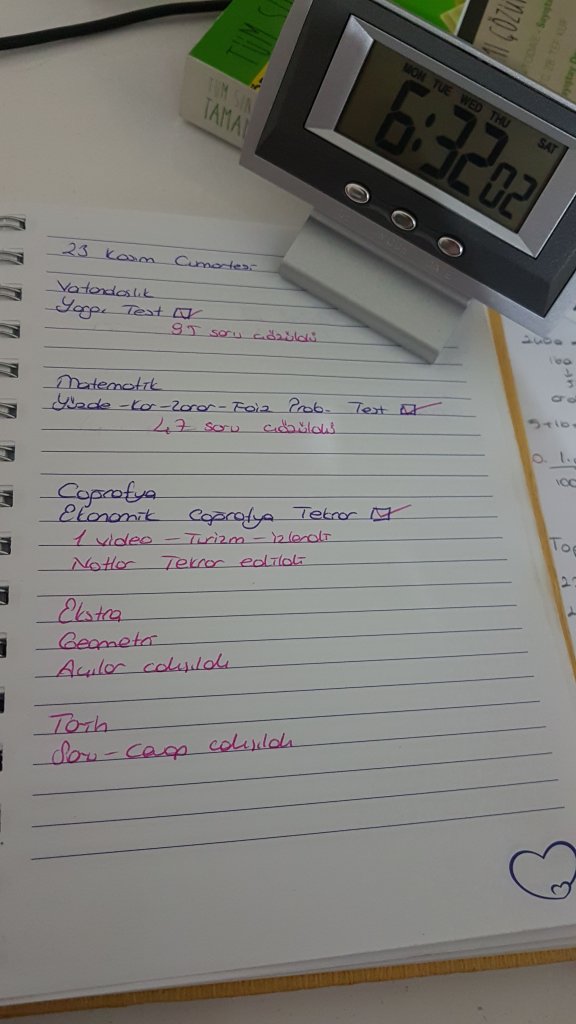 TÜM
TÜM
TAMAM
MI ÇÖZÜM
MON TUE WED THU SAT
6:32 02
23 Kasım Cumartesi
Vatandaslık
Yargı Test
95 soru çözüldü
Matematik
Yüzde-Kar-Zarar-Faiz Prob. Test
47 soru çözüldü
Coğrafya
Ekonomik Coğrafya Tekrar
1 video - Turizm - izlendi
Notlar Tekrar edildi
Ekstra
Geometri
Açılar çalışıldı
Tarih
Soru-Cevap çalışıldı
100